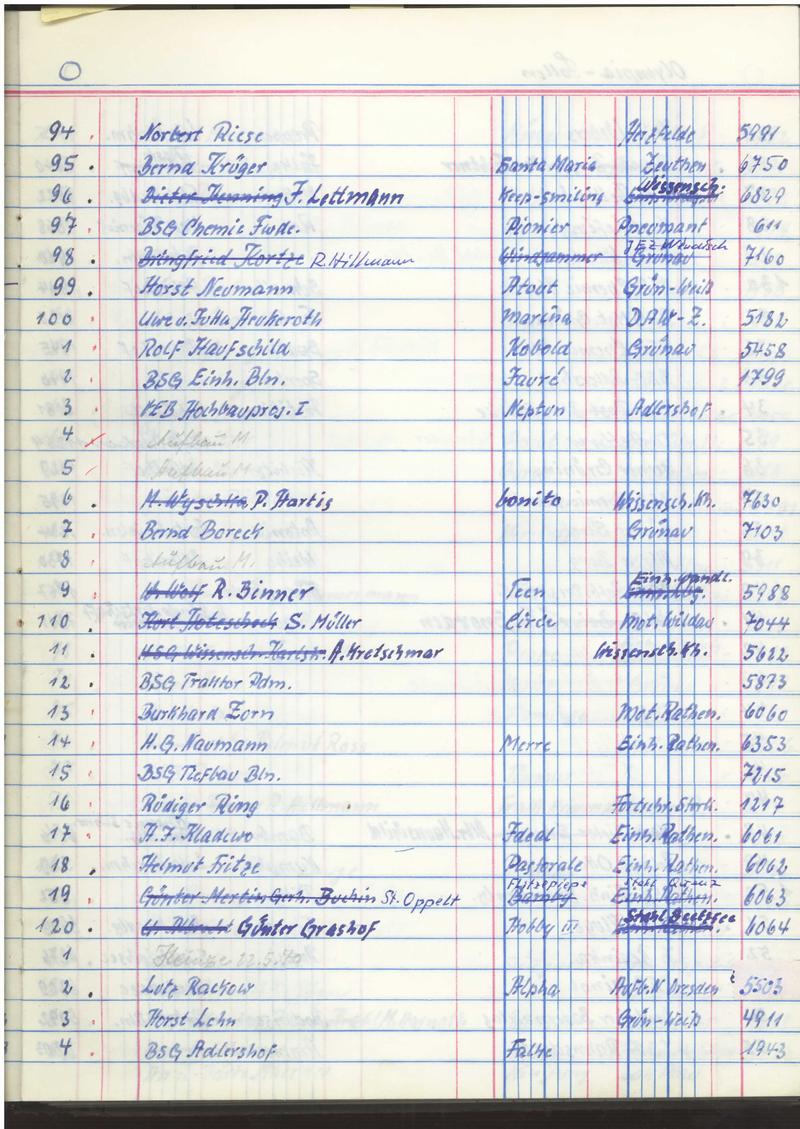 O
94 Norbert Riese Herzfelde 5991
95 . Bernd Krüger Santa Maria Zeuthen 6750
96 . Dieter Henning F. Lettmann Keep-smiling Wissensch. 6829
97 . BSG Chemie Fwde. Pionier Pneumant 611
98 . R. Hillmann Windjammer Grünau 7160
99 . Horst Neumann Atout Grün-Weiß
100 Uwe u. Jutta Heukeroth Marina DAW-Z. 5182
1 Rolf Haufschild Kobold Grünau 5458
2 BSG Einh. Bln. Fauré 1799
3 VEB Hochbauproj. I Neptun Adlershof .
4 Aufbau M
5 Aufbau M
6 . P. Hartig bonito Wissensch. Kh. 7630
7 . Bernd Boreck Grünau 7103
8 Aufbau M.
9 U. Wolf R. Binner Teen Einh. Wandl. 5988
110 . S. Müller Circe Mot. Wildau 7044
11 . A. Kretschmar Wissensch. Kh. 5622
12 . BSG Traktor Pdm. 5873
13 Burkhard Zorn Mot. Rathen. 6060
14 . H. G. Naumann Merre Einh. Rathen. 6353
15 BSG Tiefbau Bln. 7215
16 Rüdiger Ring Fortschr. Stork. 1217
17 . H. J. Kladiwo Ideal Einh. Rathen. 6061
18 . Helmut Fritze Pastorale Einh. Rathen. 6062
Flitzepiepe
19 Günter Mertin Gerh. Buchin St. Oppelt Bamby Einh. Rathen. 6063
120 . U. Albrecht Günter Grashof Hobby III Stahl Beetzsee 6064
1 Heinze 22.5.70
2 . Lutz Rachow Alpha Aufb. W Dresden 5503
3 Horst Lehn Grün-Weiß 4911
4 . BSG Adlershof Falke 1943